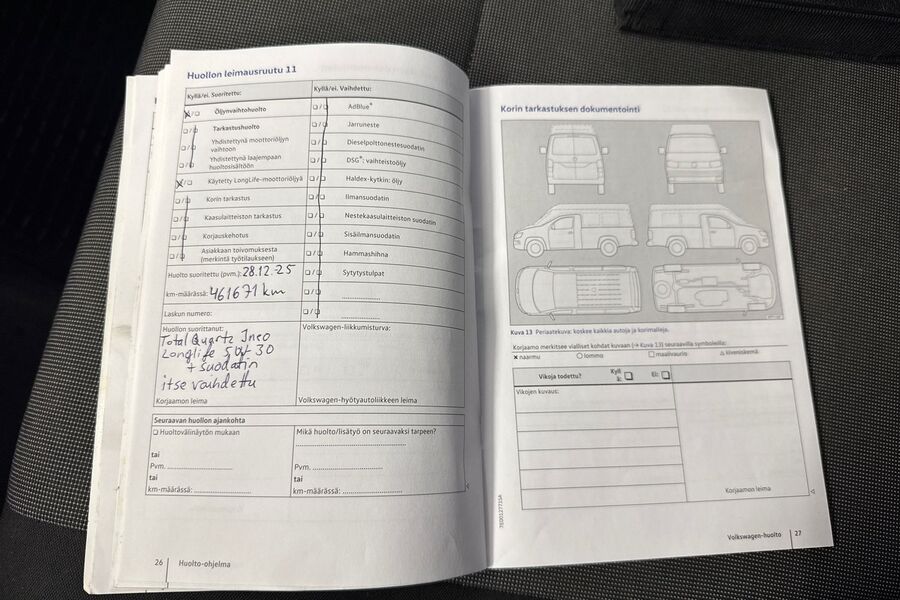 Huollon leimausruutu 11
Kyllä/ei. Suoritettu:
Kyllä/ei. Vaihdettu:
Öljynvaihtohuolto
AdBlue®
Tarkastushuolto
Jarruneste
Yhdistettynä moottoriöljyn
vaihtoon
Dieselpolttonestesuodatin
Yhdistettynä laajempaan
huoltosisältöön
DSG®: vaihteistoöljy
Käytetty LongLife-moottoriöljyä
Haldex-kytkin: öljy
Korin tarkastus
Ilmansuodatin
Kaasulaitteiston tarkastus
Nestekaasulaitteiston suodatin
Korjauskehotus
Sisäilmansuodatin
Asiakkaan toivomuksesta
(merkintä työtilaukseen)
Hammashihna
Huolto suoritettu (pvm.): 28.12.25
Sytytystulpat
km-määrässä: 461671 km
Laskun numero:
Huollon suorittanut:
Volkswagen-liikkumisturva:
Total Quartz Ineo
Longlife 5W-30
+ suodatin
itse vaihdettu
Korjaamon leima
Volkswagen-hyötyautoliikkeen leima
Seuraavan huollon ajankohta
Huoltovälinäytön mukaan
Mikä huolto/lisätyö on seuraavaksi tarpeen?
tai
Pvm.
Pvm.
tai
tai
km-määrässä:
km-määrässä:
26 Huolto-ohjelma
Korin tarkastuksen dokumentointi
Kuva 13 Periaatekuva: koskee kaikkia autoja ja korimalleja.
Korjaamo merkitsee vialliset kohdat kuvaan (→ Kuva 13) seuraavilla symboleilla:
naarmu
lommo
maalivaurio
kiveniskemä
Vikoja todettu?
Kyll
ä:
Ei:
Vikojen kuvaus:
Korjaamon leima
7E0012771SA
Volkswagen-huolto 27